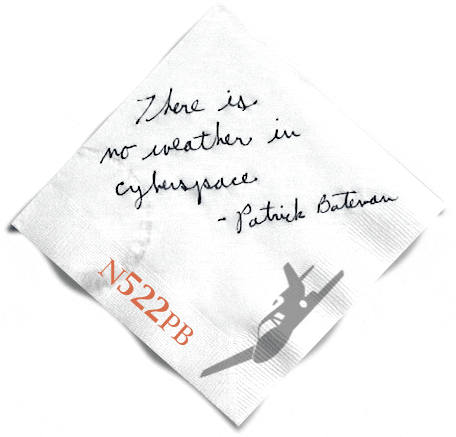 There is
no weather in
cyberspace
- Patrick Bateman
N522PB